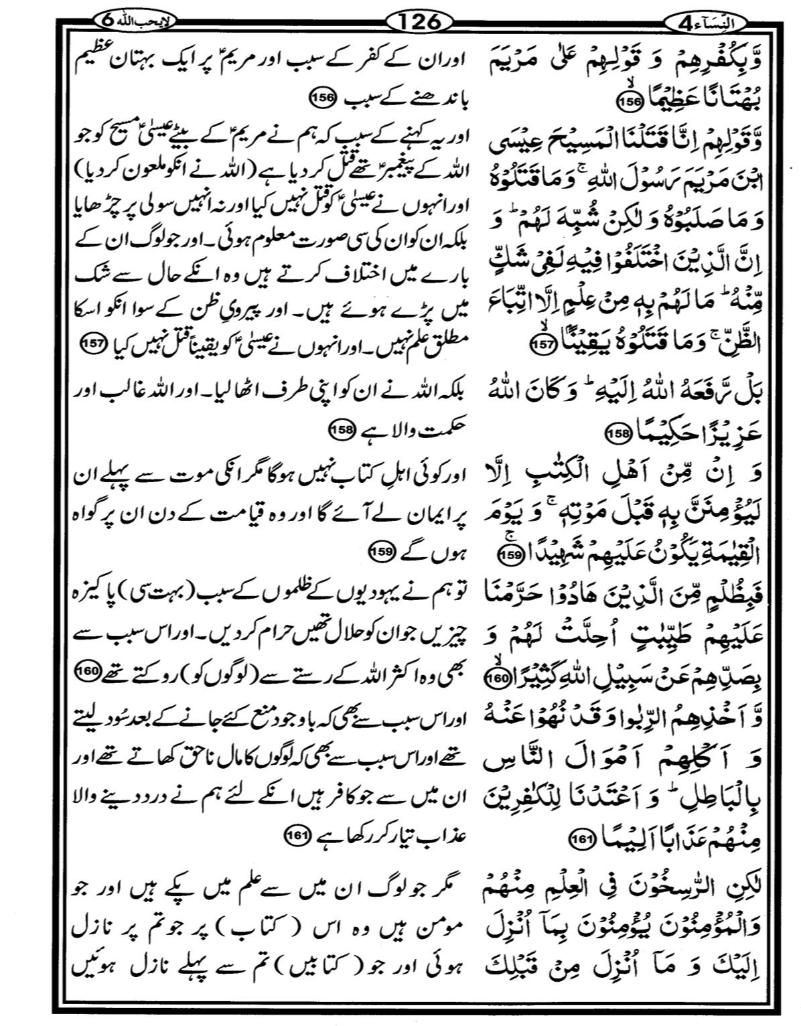 النسآء 4
126
لايحب الله 6
وَّبِكُفْرِهِمْ وَ قَوْلِهِمْ عَلٰى مَرْيَمَ
بُهْتَانًا عَظِيْمًا ۙ 156
وَّقَوْلِهِمْ اِنَّا قَتَلْنَا الْمَسِيْحَ عِيْسَى
ابْنَ مَرْيَمَ رَسُوْلَ اللّٰهِ ۚ وَمَا قَتَلُوْهُ
وَ مَا صَلَبُوْهُ وَ لٰكِنْ شُبِّهَ لَهُمْ ؕ وَ
اِنَّ الَّذِيْنَ اخْتَلَفُوْا فِيْهِ لَفِىْ شَكٍّ
مِّنْهُ ؕ مَا لَهُمْ بِهٖ مِنْ عِلْمٍ اِلَّا اتِّبَاعَ
الظَّنِّ ۚ وَمَا قَتَلُوْهُ يَقِيْنًۢا ۙ 157
بَلْ رَّفَعَهُ اللّٰهُ اِلَيْهِ ؕ وَكَانَ اللّٰهُ
عَزِيْزًا حَكِيْمًا 158
وَ اِنْ مِّنْ اَهْلِ الْكِتٰبِ اِلَّا
لَيُؤْمِنَنَّ بِهٖ قَبْلَ مَوْتِهٖ ۚ وَ يَوْمَ
الْقِيٰمَةِ يَكُوْنُ عَلَيْهِمْ شَهِيْدًا ۚ 159
فَبِظُلْمٍ مِّنَ الَّذِيْنَ هَادُوْا حَرَّمْنَا
عَلَيْهِمْ طَيِّبٰتٍ اُحِلَّتْ لَهُمْ وَ
بِصَدِّهِمْ عَنْ سَبِيْلِ اللّٰهِ كَثِيْرًا ۙ 160
وَّ اَخْذِهِمُ الرِّبٰوا وَ قَدْ نُهُوْا عَنْهُ
وَ اَكْلِهِمْ اَمْوَالَ النَّاسِ
بِالْبَاطِلِ ؕ وَ اَعْتَدْنَا لِلْكٰفِرِيْنَ
مِنْهُمْ عَذَابًا اَلِيْمًا 161
لٰكِنِ الرّٰسِخُوْنَ فِى الْعِلْمِ مِنْهُمْ
وَالْمُؤْمِنُوْنَ يُؤْمِنُوْنَ بِمَاۤ اُنْزِلَ
اِلَيْكَ وَ مَاۤ اُنْزِلَ مِنْ قَبْلِكَ
اور ان کے کفر کے سبب اور مریمؑ پر ایک بہتان عظیم
باندھنے کے سبب 156
اور یہ کہنے کے سبب کہ ہم نے مریمؑ کے بیٹے عیسیٰؑ مسیح کو جو
اللہ کے پیغمبرؑ تھے قتل کر دیا ہے (اللہ نے انکو ملعون کر دیا)
اور انہوں نے عیسیٰؑ کو قتل نہیں کیا اور نہ انہیں سولی پر چڑھایا
بلکہ ان کو ان کی سی صورت معلوم ہوئی۔ اور جو لوگ ان کے
بارے میں اختلاف کرتے ہیں وہ انکے حال سے شک
میں پڑے ہوئے ہیں۔ اور پیروئ ظن کے سوا انکو اسکا
مطلق علم نہیں۔ اور انہوں نے عیسیٰؑ کو یقیناً قتل نہیں کیا 157
بلکہ اللہ نے ان کو اپنی طرف اٹھا لیا۔ اور اللہ غالب اور
حکمت والا ہے 158
اور کوئی اہلِ کتاب نہیں ہوگا مگر انکی موت سے پہلے ان
پر ایمان لے آئے گا اور وہ قیامت کے دن ان پر گواہ
ہوں گے 159
تو ہم نے یہودیوں کے ظلموں کے سبب (بہت سی) پاکیزہ
چیزیں جو ان کو حلال تھیں حرام کر دیں۔ اور اس سبب سے
بھی وہ اکثر اللہ کے رستے سے (لوگوں کو) روکتے تھے 160
اور اس سبب سے بھی کہ باوجود منع کئے جانے کے بعد سُود لیتے
تھے اور اس سبب سے بھی کہ لوگوں کا مال ناحق کھاتے تھے اور
ان میں سے جو کافر ہیں انکے لئے ہم نے درد دینے والا
عذاب تیار کر رکھا ہے 161
مگر جو لوگ ان میں سے علم میں پکے ہیں اور جو
مومن ہیں وہ اس (کتاب) پر جو تم پر نازل
ہوئی اور جو (کتابیں) تم سے پہلے نازل ہوئیں